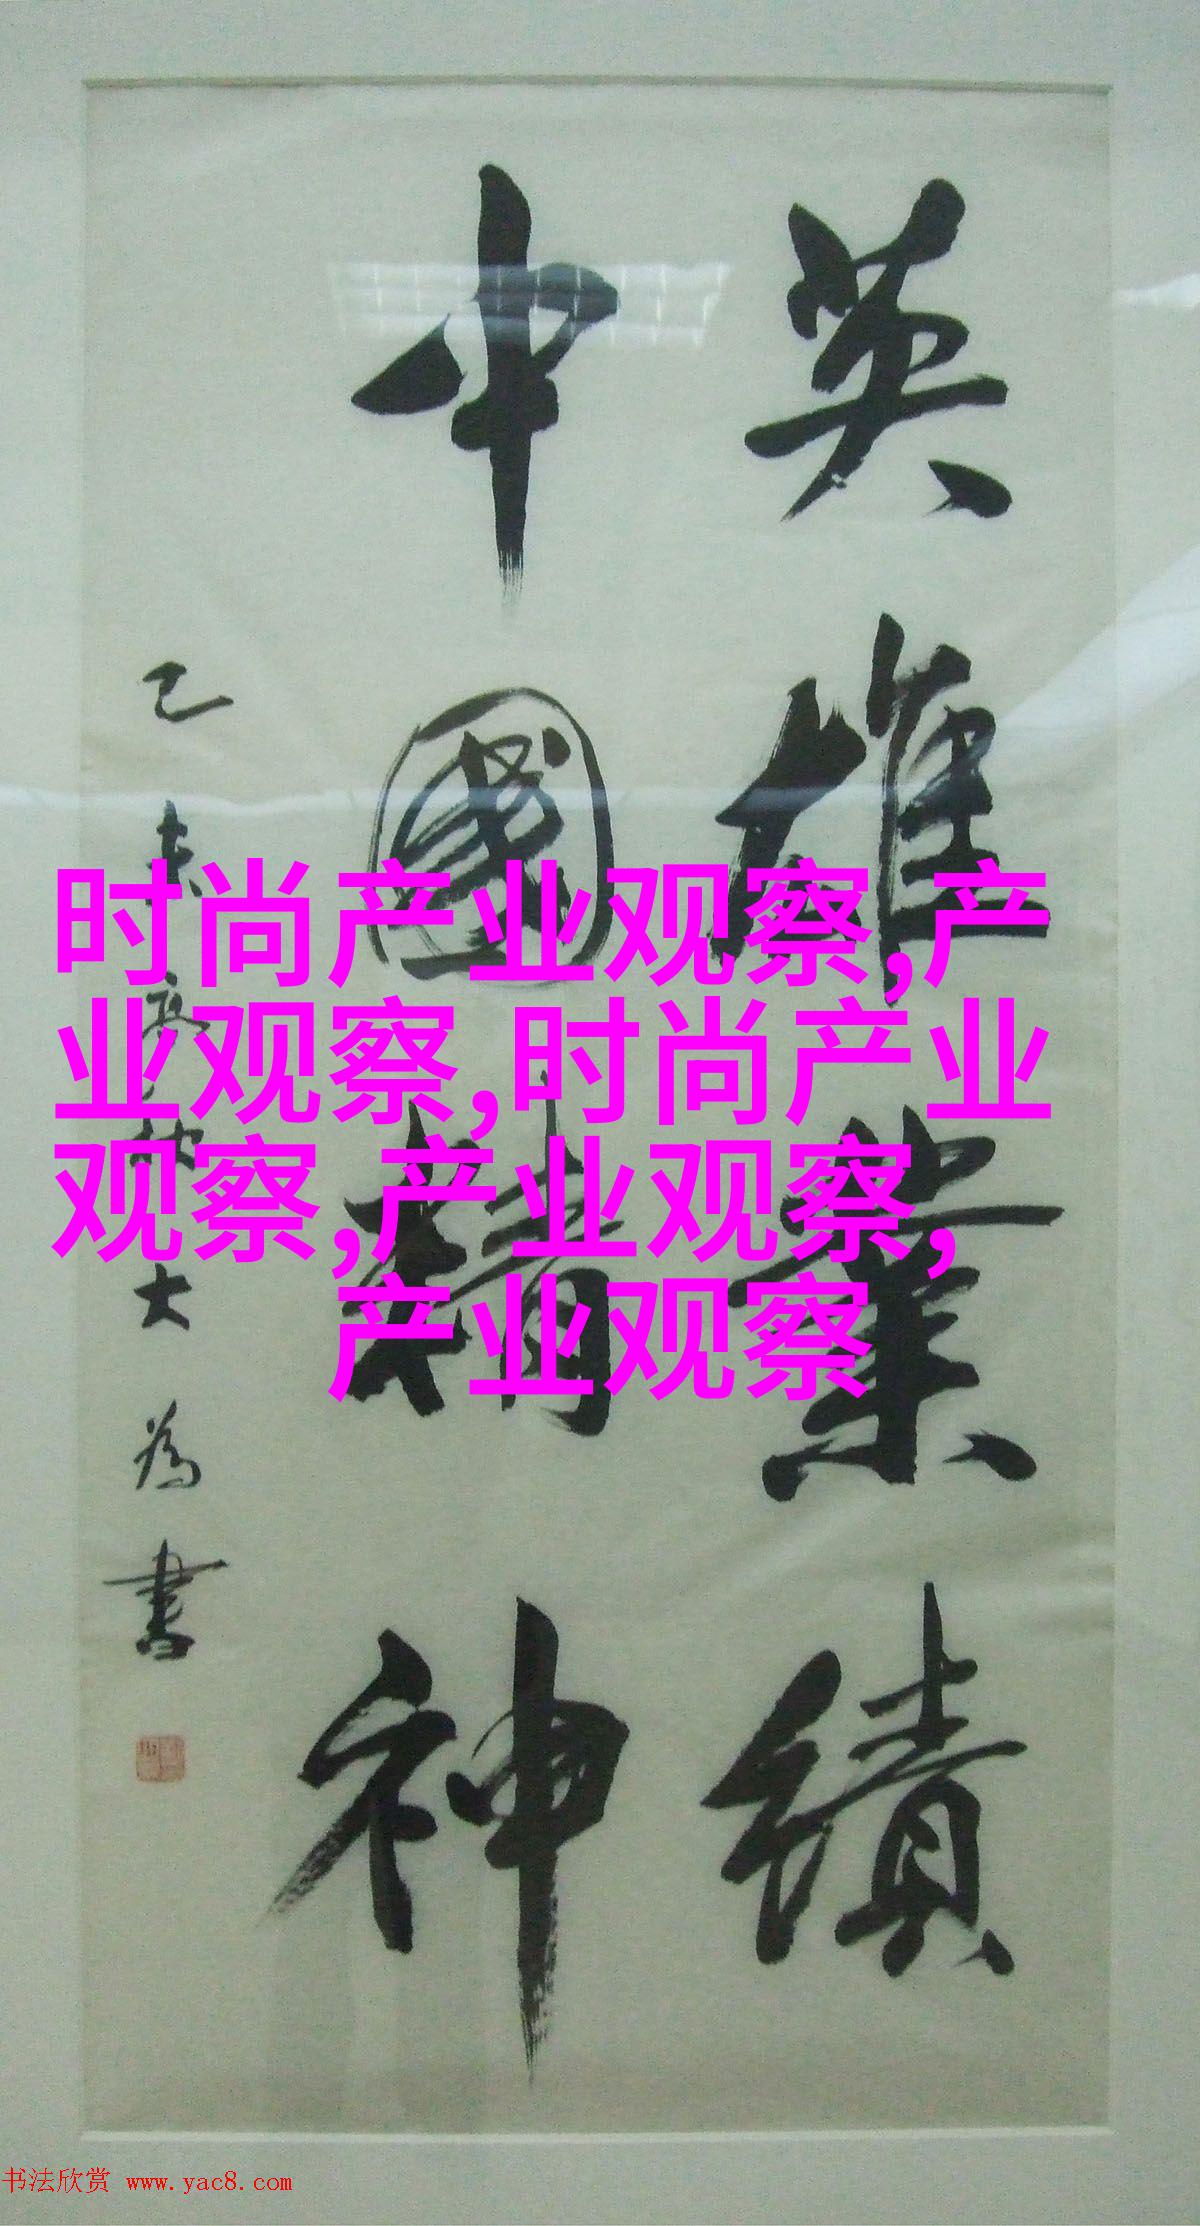 英雄業績
中國精神
乙未夏施大為書
时尚产业观察,产
业观察,时尚产业
观察,产业观察,
产业观察
书法欣赏 www.yac8.com